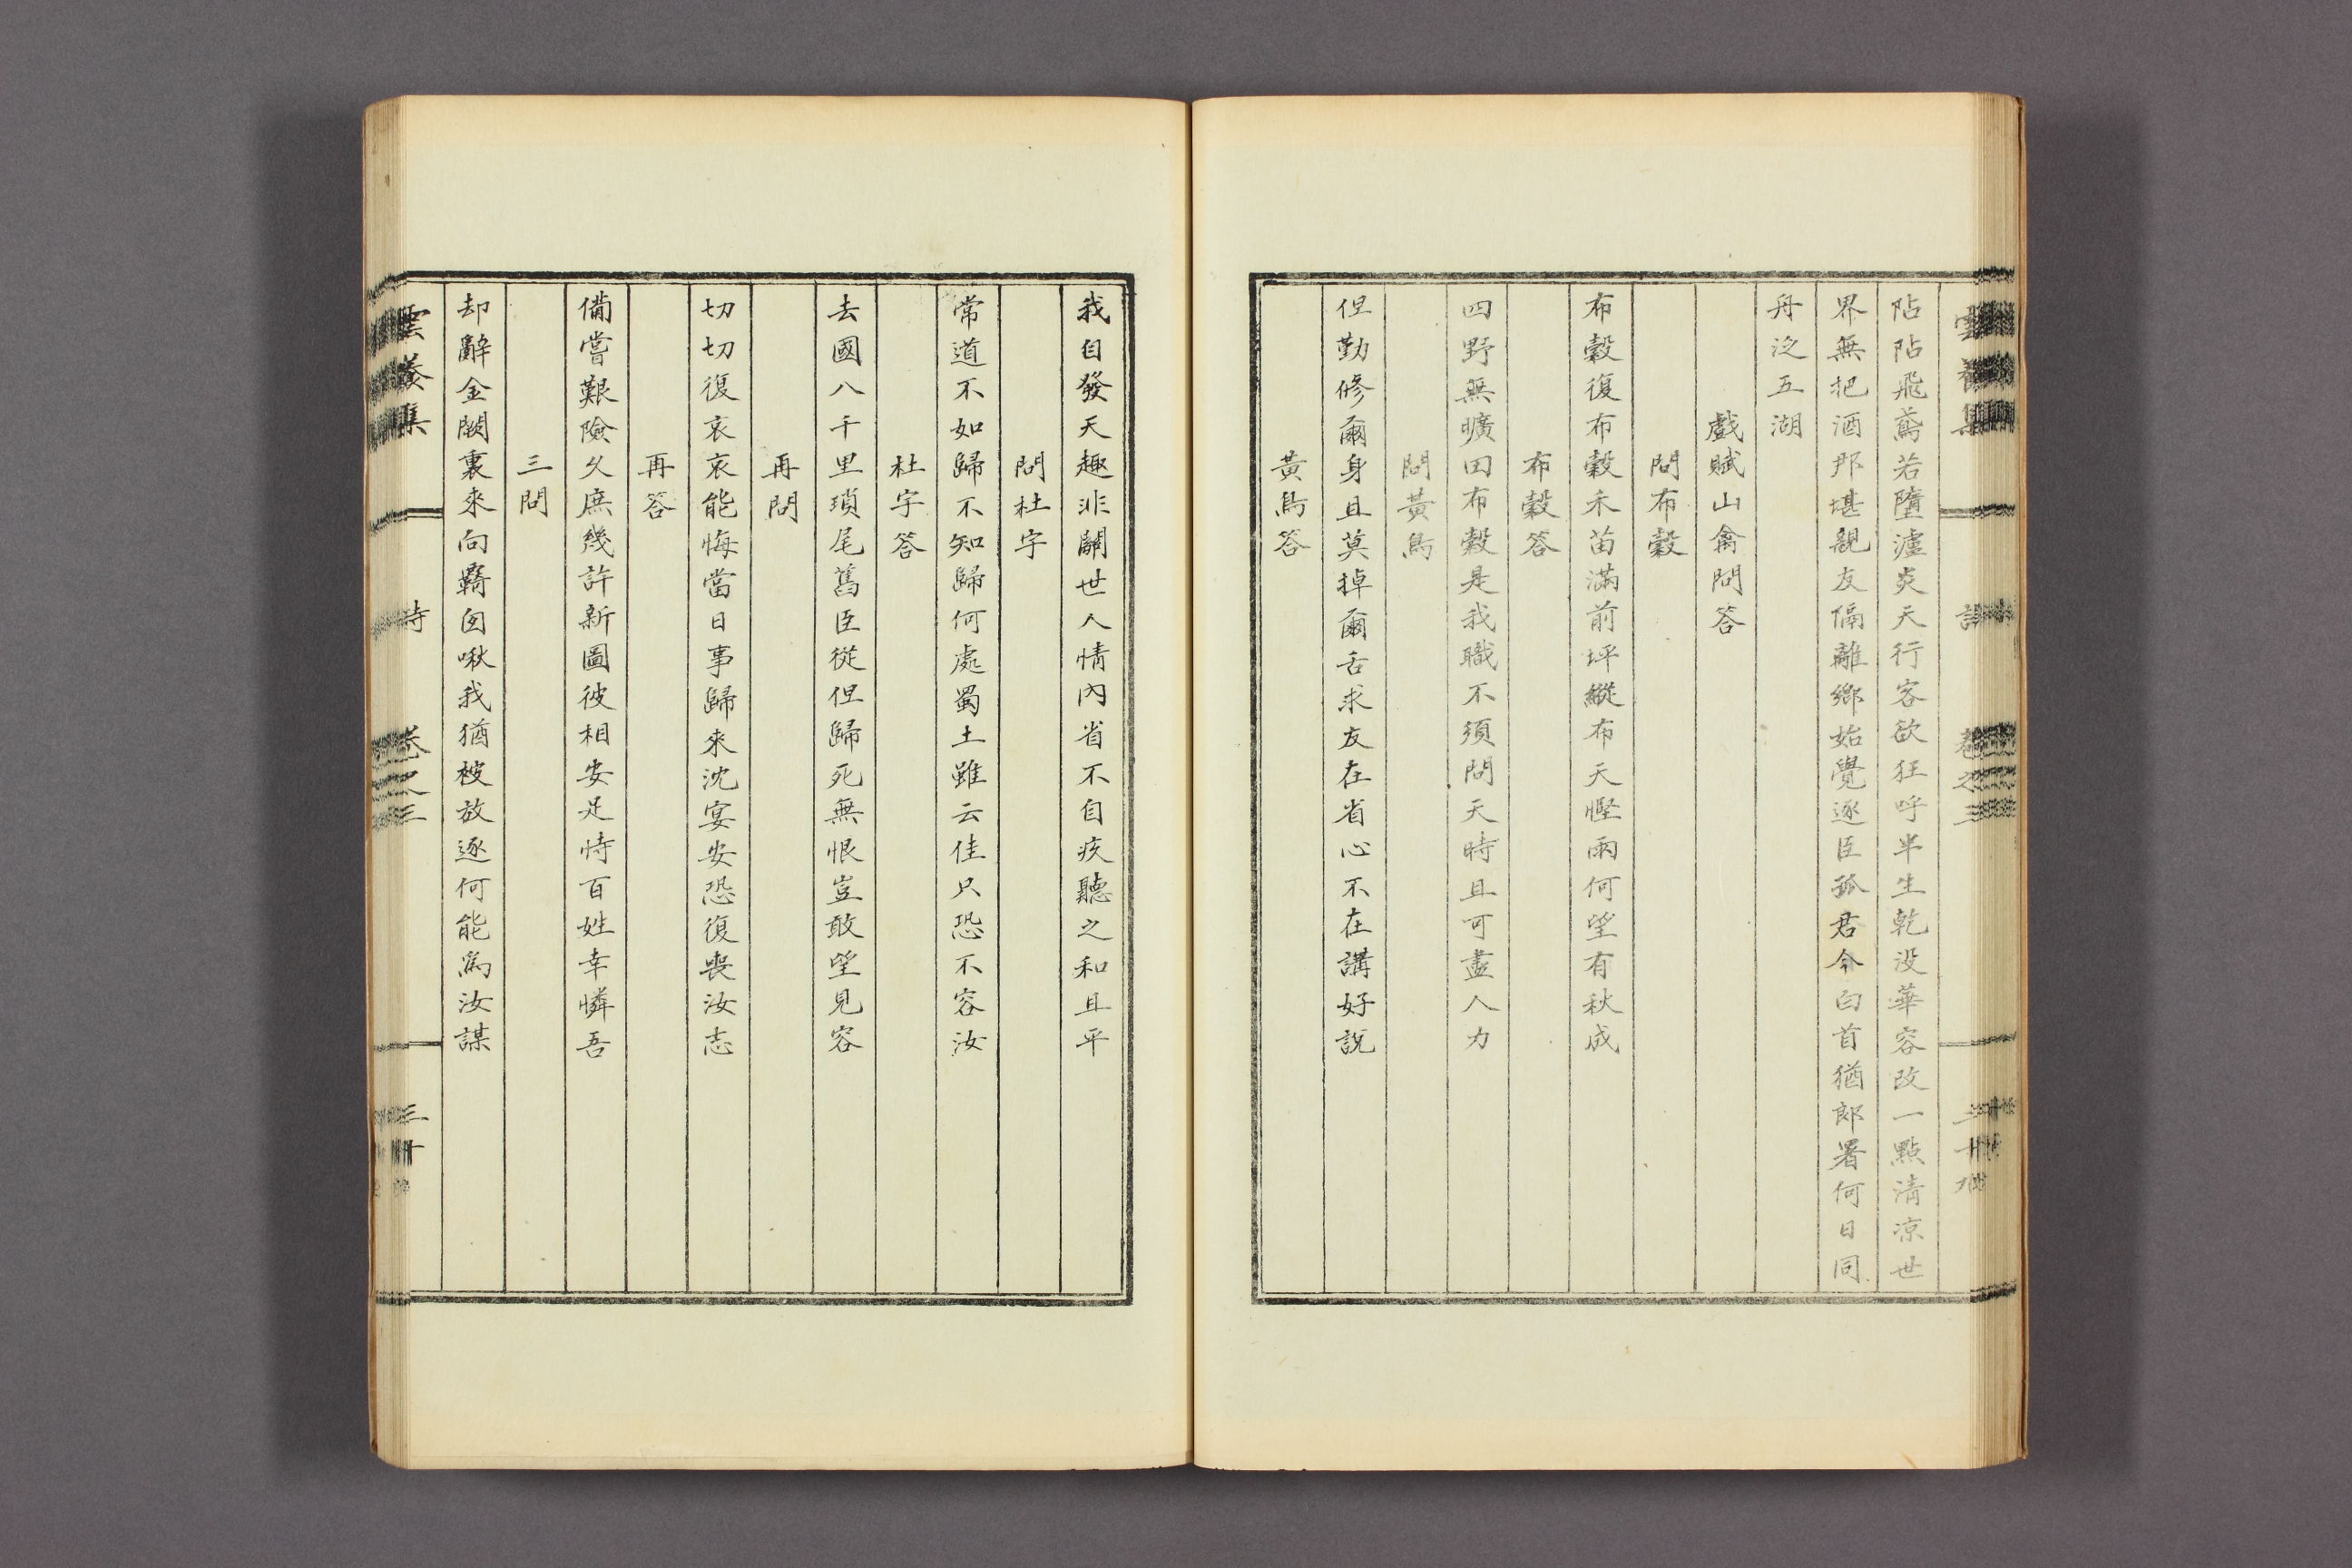 跕跕飛鳶若墮瀘炎天行客欲狂呼半生乾没華容改一點淸凉世
界無把酒那堪親友偏離鄉始覺逐臣孤君今白首猶郎署何日同
舟泛五湖
戲賦山禽問答
問布穀
布穀復布穀禾苗滿前坪縱布天慳雨何望有秋成
布穀答
四野無曠田布穀是我職不須問天時且可盡人力
問黃鳥
但勤修爾身且莫掉爾舌求友在省心不在講好說
黃鳥答
我自發天趣非關世人情內省不自疚聽之和且平
問杜宇
常道不如歸不知歸何處蜀土雖云佳只恐不容汝
杜宇答
去國八千里瑣尾舊臣從但歸死無恨豈敢望見容
再問
切切復哀哀能悔當日事歸來沈宴安恐復喪汝志
再答
備嘗艱險久庶幾許新圖彼相安足恃百姓幸憐吾
三問
却辭金闕裏來向羇囪啾我猶被放逐何能爲汝謀
雲養集 詩 卷之三 三十